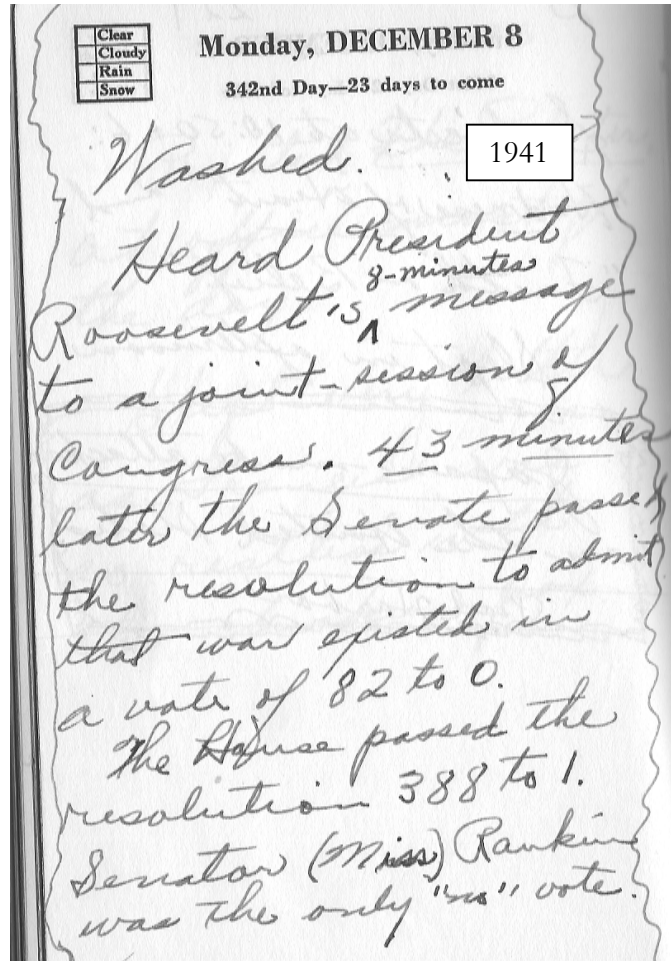 Clear
Cloudy
Rain
Snow
Monday, DECEMBER 8
342nd Day—23 days to come
1941
Washed.
Heard President
8-minutes
Roosevelt's ^ message
to a joint-session of
Congress. 43 minutes
later the Senate passed
the resolution to admit
that war existed in
a vote of 82 to 0.
The House passed the
resolution 388 to 1.
Senator (Miss) Rankin
was the only "no" vote.